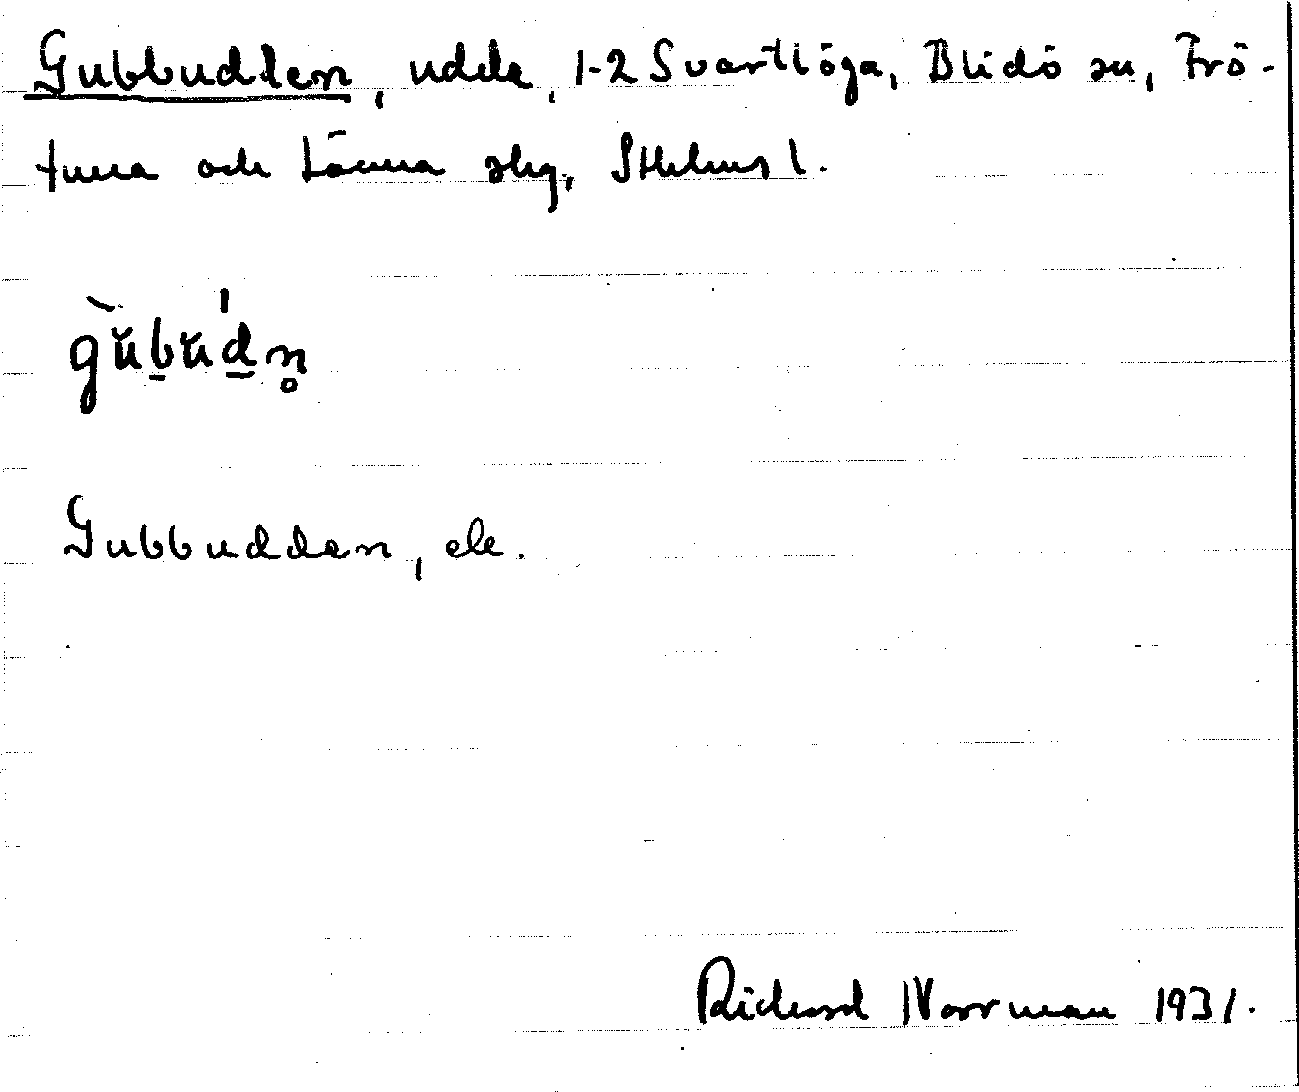 Gubbudden, udde, 1-2 Svartlöga, Blidö sn, Frö-
tuna och Länna skg, Sthlms l.
gŭbŭdn̥
Gubbudden, ek.
Richard Norrman 1931.